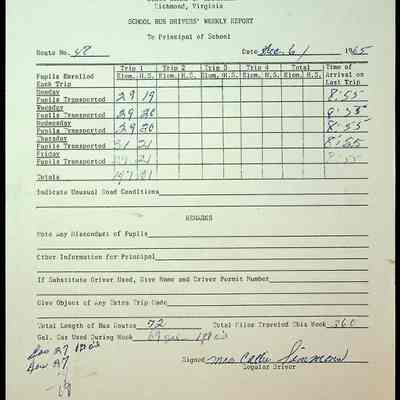 Richmond, Virginia
SCHOOL BUS DRIVERS' WEEKLY REPORT
To Principal of School
Route No. 48 Date Dec. 6, 1965
Trip 1 Trip 2 Trip 3 Trip 4 Total Time of Arrival on Last Trip
Pupils Enrolled Each Trip Elem. H.S. Elem. H.S. Elem. H.S. Elem. H.S. Elem. H.S.
Monday Pupils Transported 29 19 8:55
Tuesday Pupils Transported 29 20 8:55
Wednesday Pupils Transported 29 20 8:55
Thursday Pupils Transported 31 21 8:55
Friday Pupils Transported 21
Totals
Indicate Unusual Road Conditions
REMARKS
Note Any Misconduct of Pupils
Other Information for Principal
If Substitute Driver Used, Give Name and Driver Permit Number
Give Object of Any Extra Trip Made
Total Length of Bus Routes 72 Total Miles Traveled this Week 360
Gal. Gas Used During Week 69 gas
Signed Mrs Callie Simmons
Regular Driver